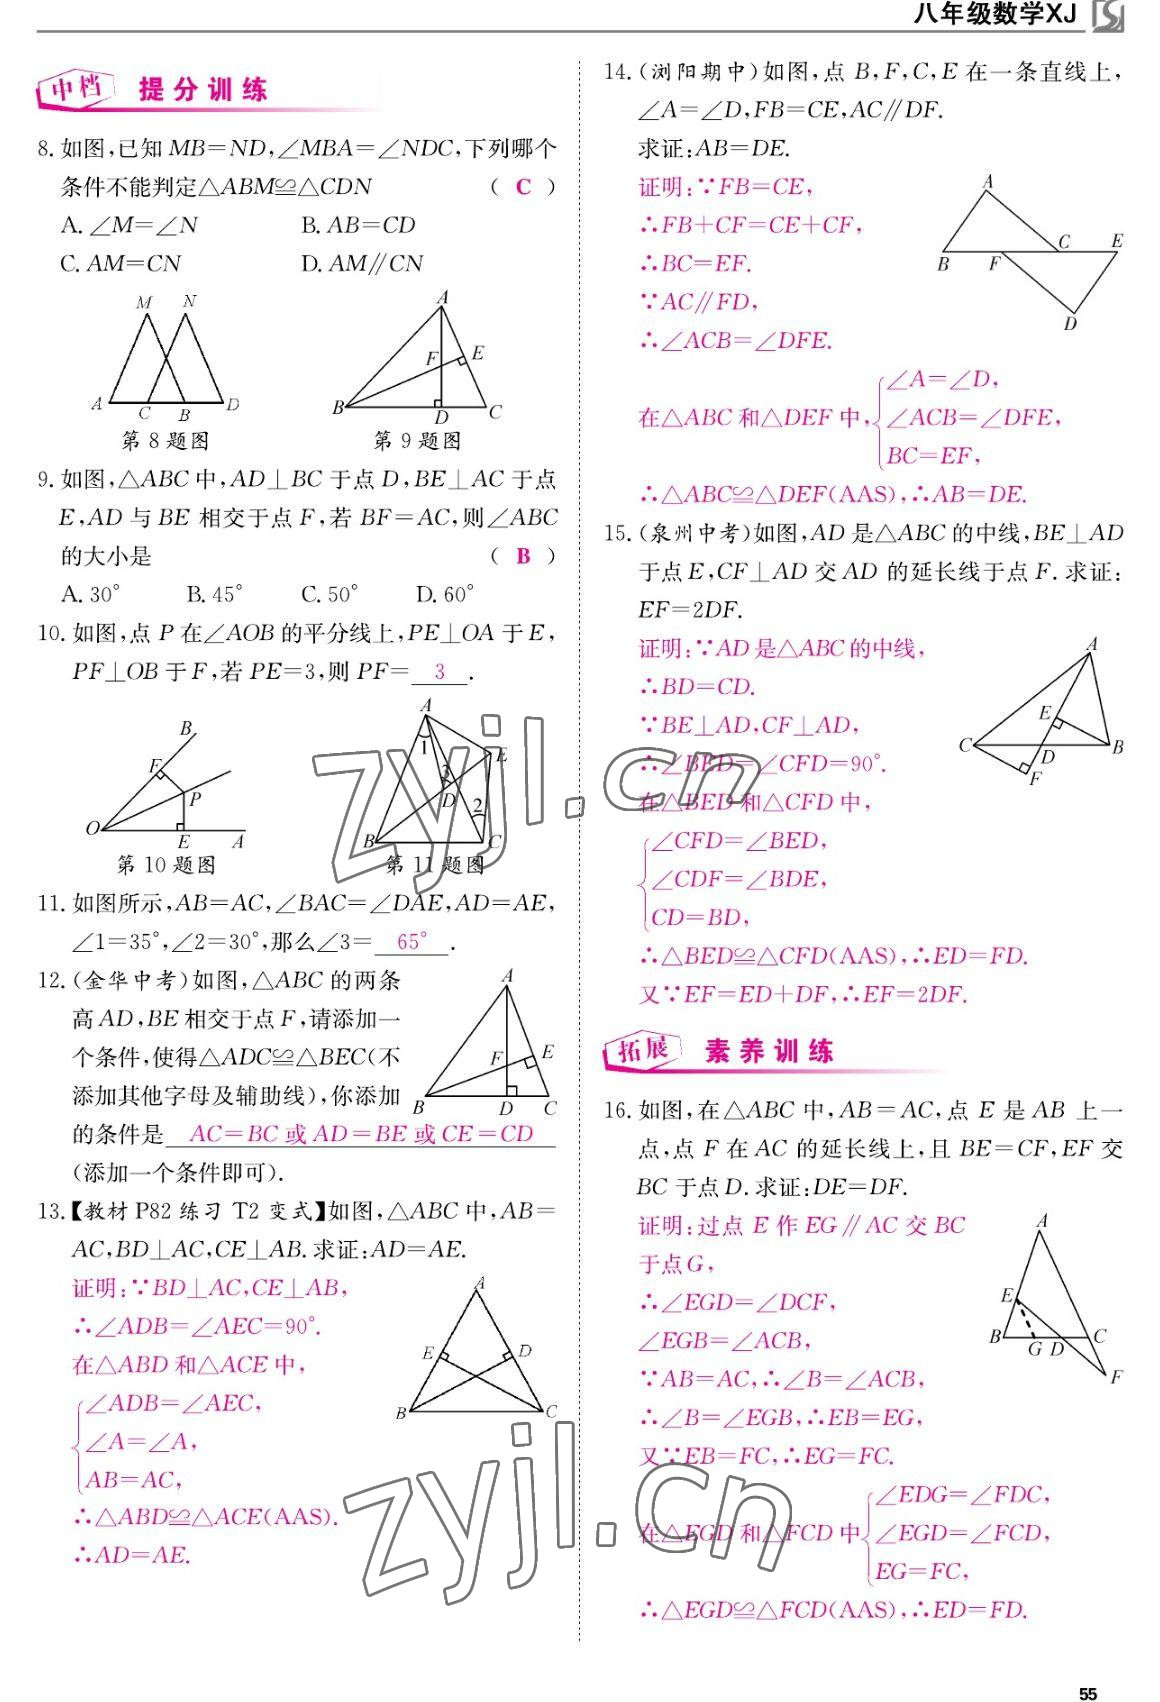 八年级数学XJ
中档 提分训练
8. 如图,已知 MB=ND,∠MBA=∠NDC,下列哪个
条件不能判定△ABM≌△CDN ( C )
A. ∠M=∠N B. AB=CD
C. AM=CN D. AM∥CN
M N A C B D
第 8 题图
A F E B D C
第 9 题图
9. 如图,△ABC 中,AD⊥BC 于点 D,BE⊥AC 于点
E,AD 与 BE 相交于点 F,若 BF=AC,则∠ABC
的大小是 ( B )
A. 30° B. 45° C. 50° D. 60°
10. 如图,点 P 在∠AOB 的平分线上,PE⊥OA 于 E,
PF⊥OB 于 F,若 PE=3,则 PF= 3 .
B F P O E A
第 10 题图
A 1 E 3 D 2 B C
第 11 题图
11. 如图所示,AB=AC,∠BAC=∠DAE,AD=AE,
∠1=35°,∠2=30°,那么∠3= 65° .
12. (金华中考)如图,△ABC 的两条
高 AD,BE 相交于点 F,请添加一
个条件,使得△ADC≌△BEC(不
添加其他字母及辅助线),你添加
的条件是 AC=BC 或 AD=BE 或 CE=CD
(添加一个条件即可).
A F E B D C
13.【教材 P82 练习 T2 变式】如图,△ABC 中,AB=
AC,BD⊥AC,CE⊥AB. 求证:AD=AE.
证明:∵BD⊥AC,CE⊥AB,
∴∠ADB=∠AEC=90°.
在△ABD 和△ACE 中,
∠ADB=∠AEC,
∠A=∠A,
AB=AC,
∴△ABD≌△ACE(AAS).
∴AD=AE.
A E D B C
14. (浏阳期中)如图,点 B,F,C,E 在一条直线上,
∠A=∠D,FB=CE,AC∥DF.
求证:AB=DE.
证明:∵FB=CE,
∴FB+CF=CE+CF,
∴BC=EF.
∵AC∥FD,
∴∠ACB=∠DFE.
∠A=∠D,
在△ABC 和△DEF 中, ∠ACB=∠DFE,
BC=EF,
∴△ABC≌△DEF(AAS),∴AB=DE.
A C E B F D
15. (泉州中考)如图,AD 是△ABC 的中线,BE⊥AD
于点 E,CF⊥AD 交 AD 的延长线于点 F. 求证:
EF=2DF.
证明:∵AD 是△ABC 的中线,
∴BD=CD.
∵BE⊥AD,CF⊥AD,
∴∠BED=∠CFD=90°.
在△BED 和△CFD 中,
∠CFD=∠BED,
∠CDF=∠BDE,
CD=BD,
∴△BED≌△CFD(AAS),∴ED=FD.
又∵EF=ED+DF,∴EF=2DF.
A E C D B F
拓展 素养训练
16. 如图,在△ABC 中,AB=AC,点 E 是 AB 上一
点,点 F 在 AC 的延长线上,且 BE=CF,EF 交
BC 于点 D. 求证:DE=DF.
证明:过点 E 作 EG∥AC 交 BC
于点 G,
∴∠EGD=∠DCF,
∠EGB=∠ACB,
∵AB=AC,∴∠B=∠ACB,
∴∠B=∠EGB,∴EB=EG,
又∵EB=FC,∴EG=FC.
∠EDG=∠FDC,
在△EGD 和△FCD 中 ∠EGD=∠FCD,
EG=FC,
∴△EGD≌△FCD(AAS),∴ED=FD.
A E B G D C F
zyjl.cn
zyjl.cn
55